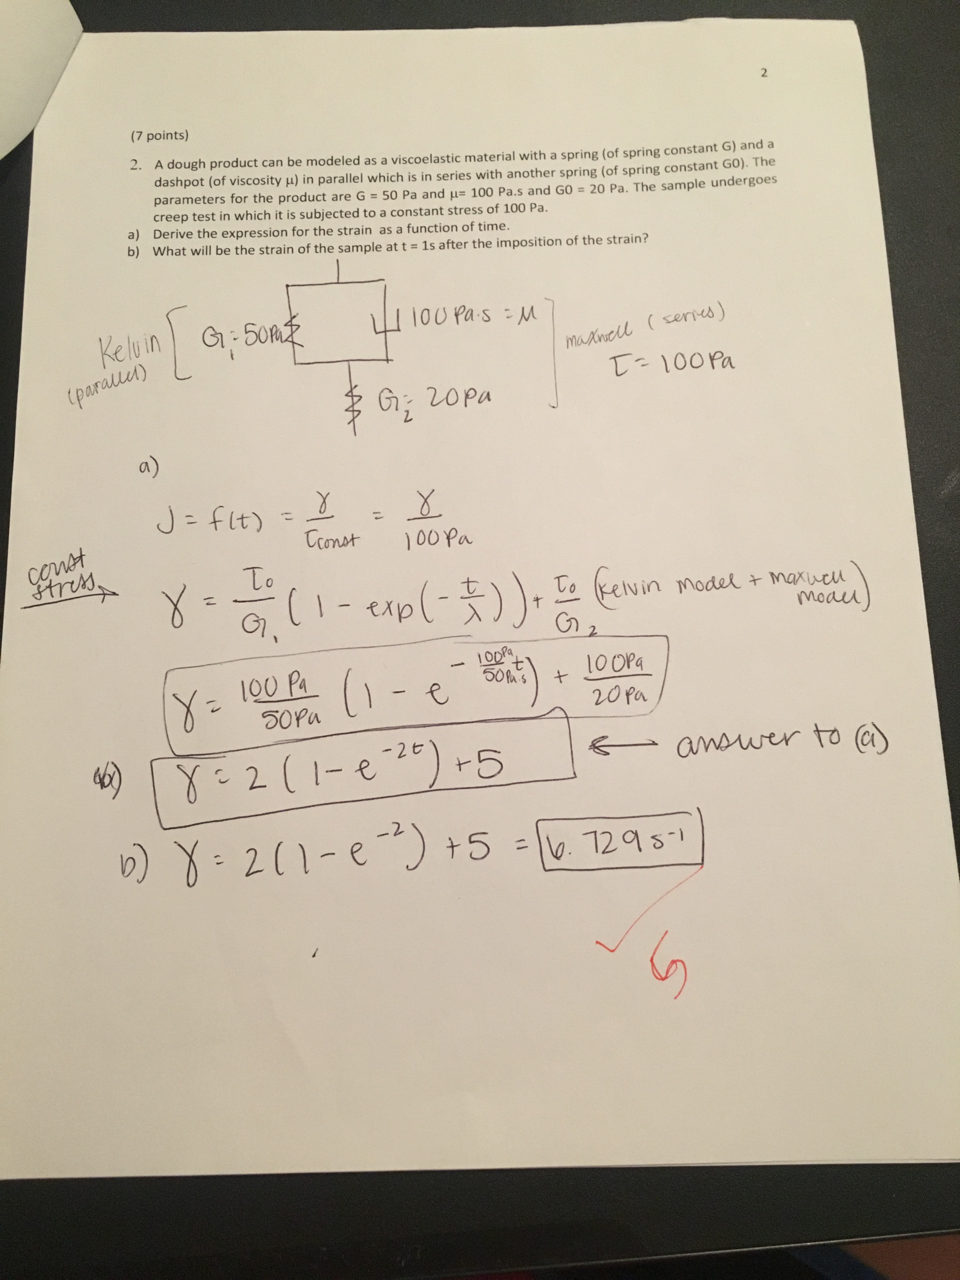 2
(7 points)
2. A dough product can be modeled as a viscoelastic material with a spring (of spring constant G) and a
dashpot (of viscosity μ) in parallel which is in series with another spring (of spring constant G0). The
parameters for the product are G = 50 Pa and μ= 100 Pa.s and G0 = 20 Pa. The sample undergoes
creep test in which it is subjected to a constant stress of 100 Pa.
a) Derive the expression for the strain as a function of time.
b) What will be the strain of the sample at t = 1s after the imposition of the strain?
Kelvin
(parallel)
G₁ = 50Pa
100 Pa·s = μ
G₂ = 20Pa
maxwell (series)
τ = 100Pa
a)
J = f(t) = γ/τconst = γ/100Pa
const
stress →
γ = τ₀/G₁ (1 - exp(-t/λ)) + τ₀/G₂ (Kelvin model + maxwell
model)
γ = 100 Pa/50Pa (1 - e^(-100Pa/50Pa·s t)) + 100Pa/20Pa
γ = 2(1-e^(-2t)) +5 ← answer to (a)
b) γ = 2(1-e^(-2)) +5 = 6.729 s^(-1)
✓ 6